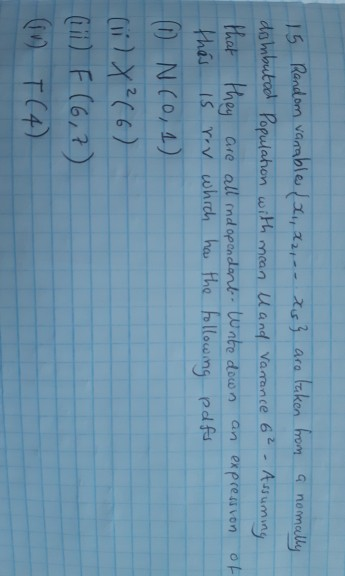 15 Random variables {x₁, x₂, --- x₁₅} are taken from a normally
distributed Population with mean U and variance 6² - Assuming
that they are all independent. Write down an expression of
this 15 r.v which has the following pdfs
(i) N(0,1)
(ii) X²(6)
(iii) F(6,7)
(iv) T(4)